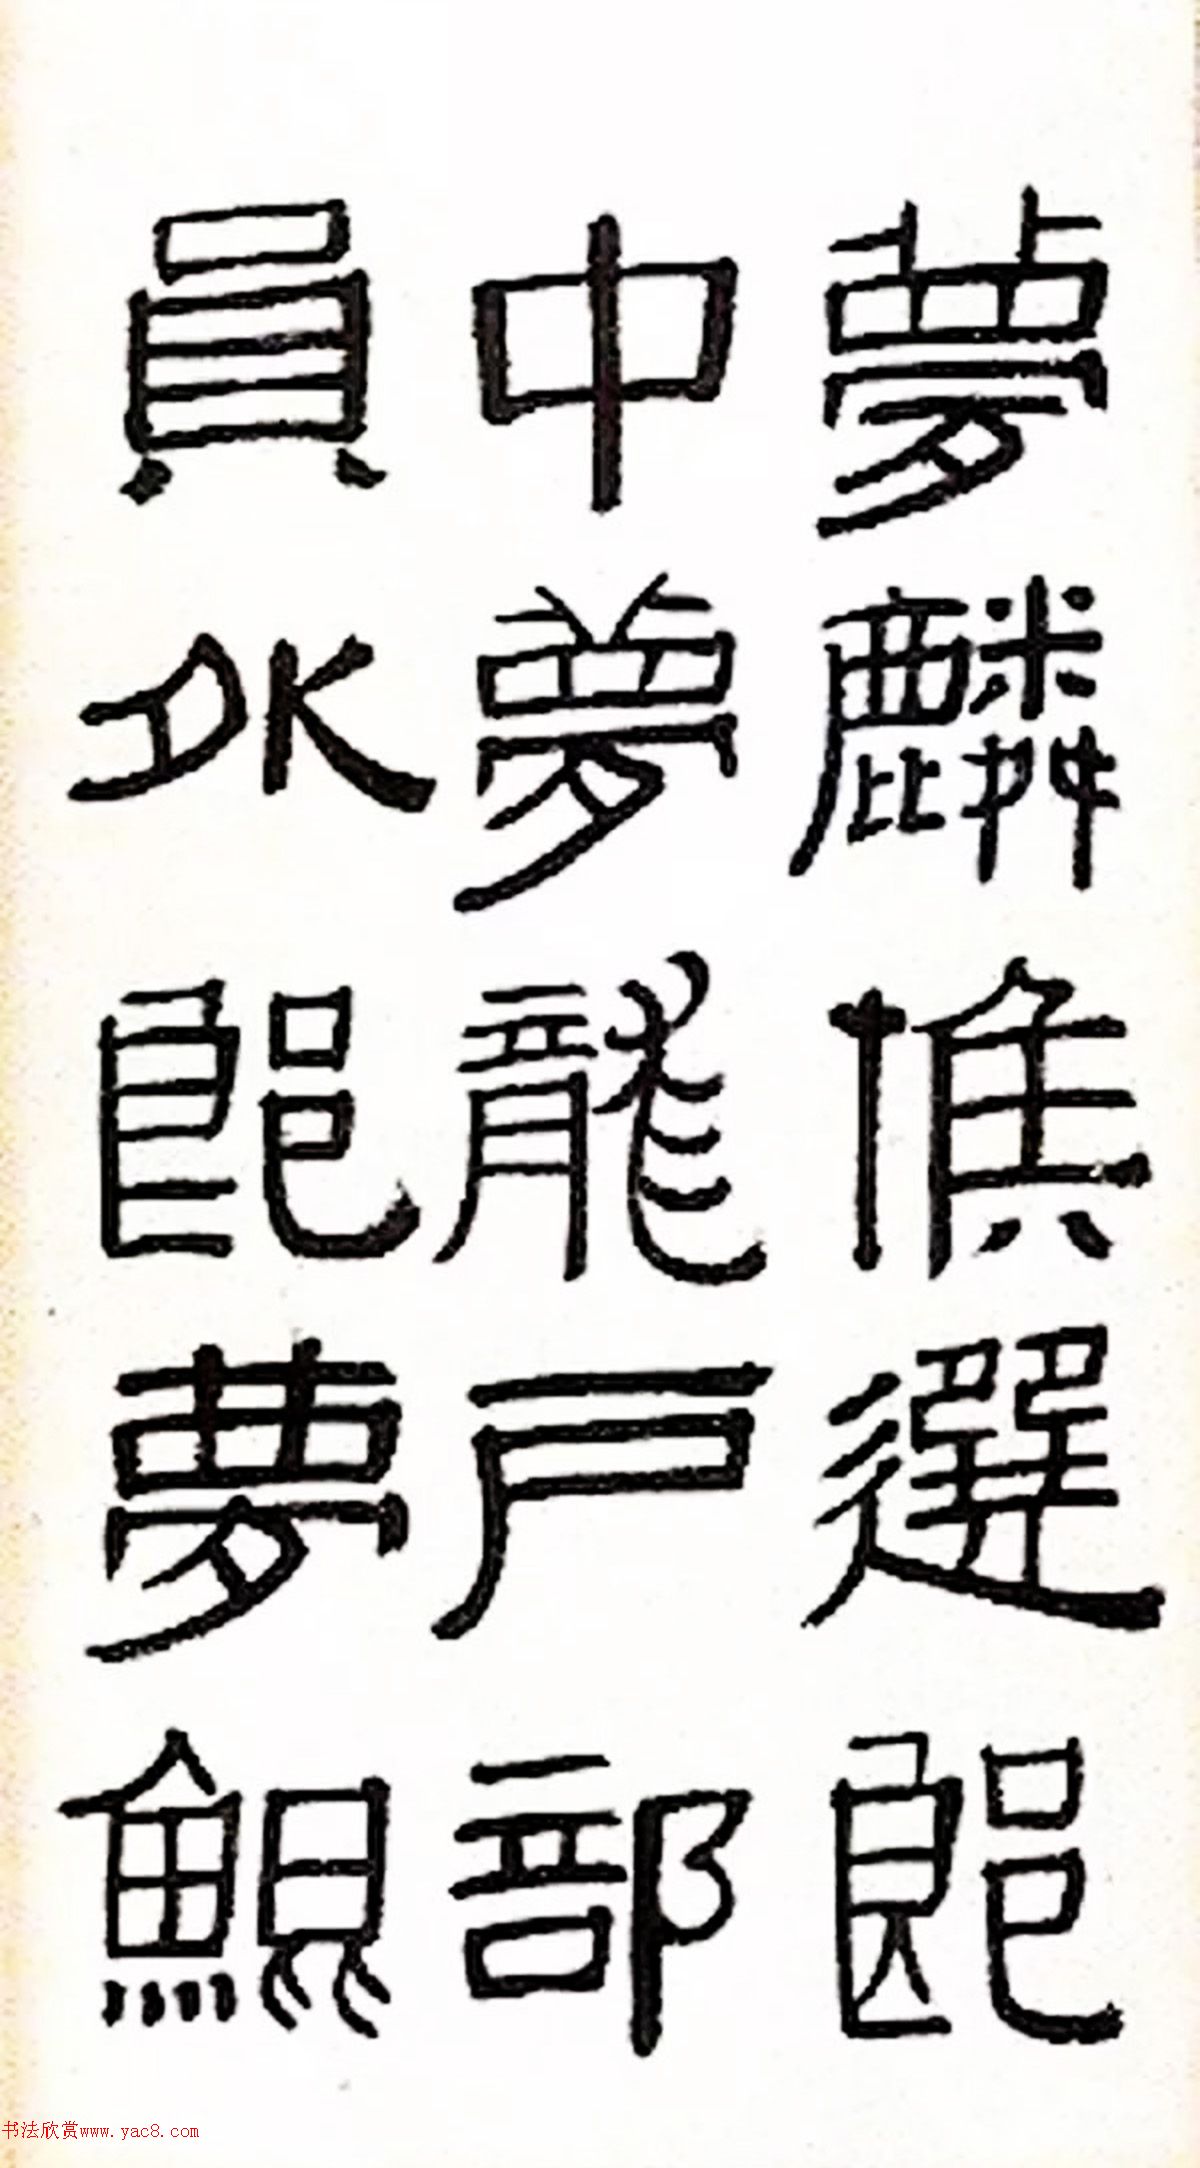 夢麟候選郎
中夢龍戶部
員外郎夢鯤
书法欣赏www.yac8.com